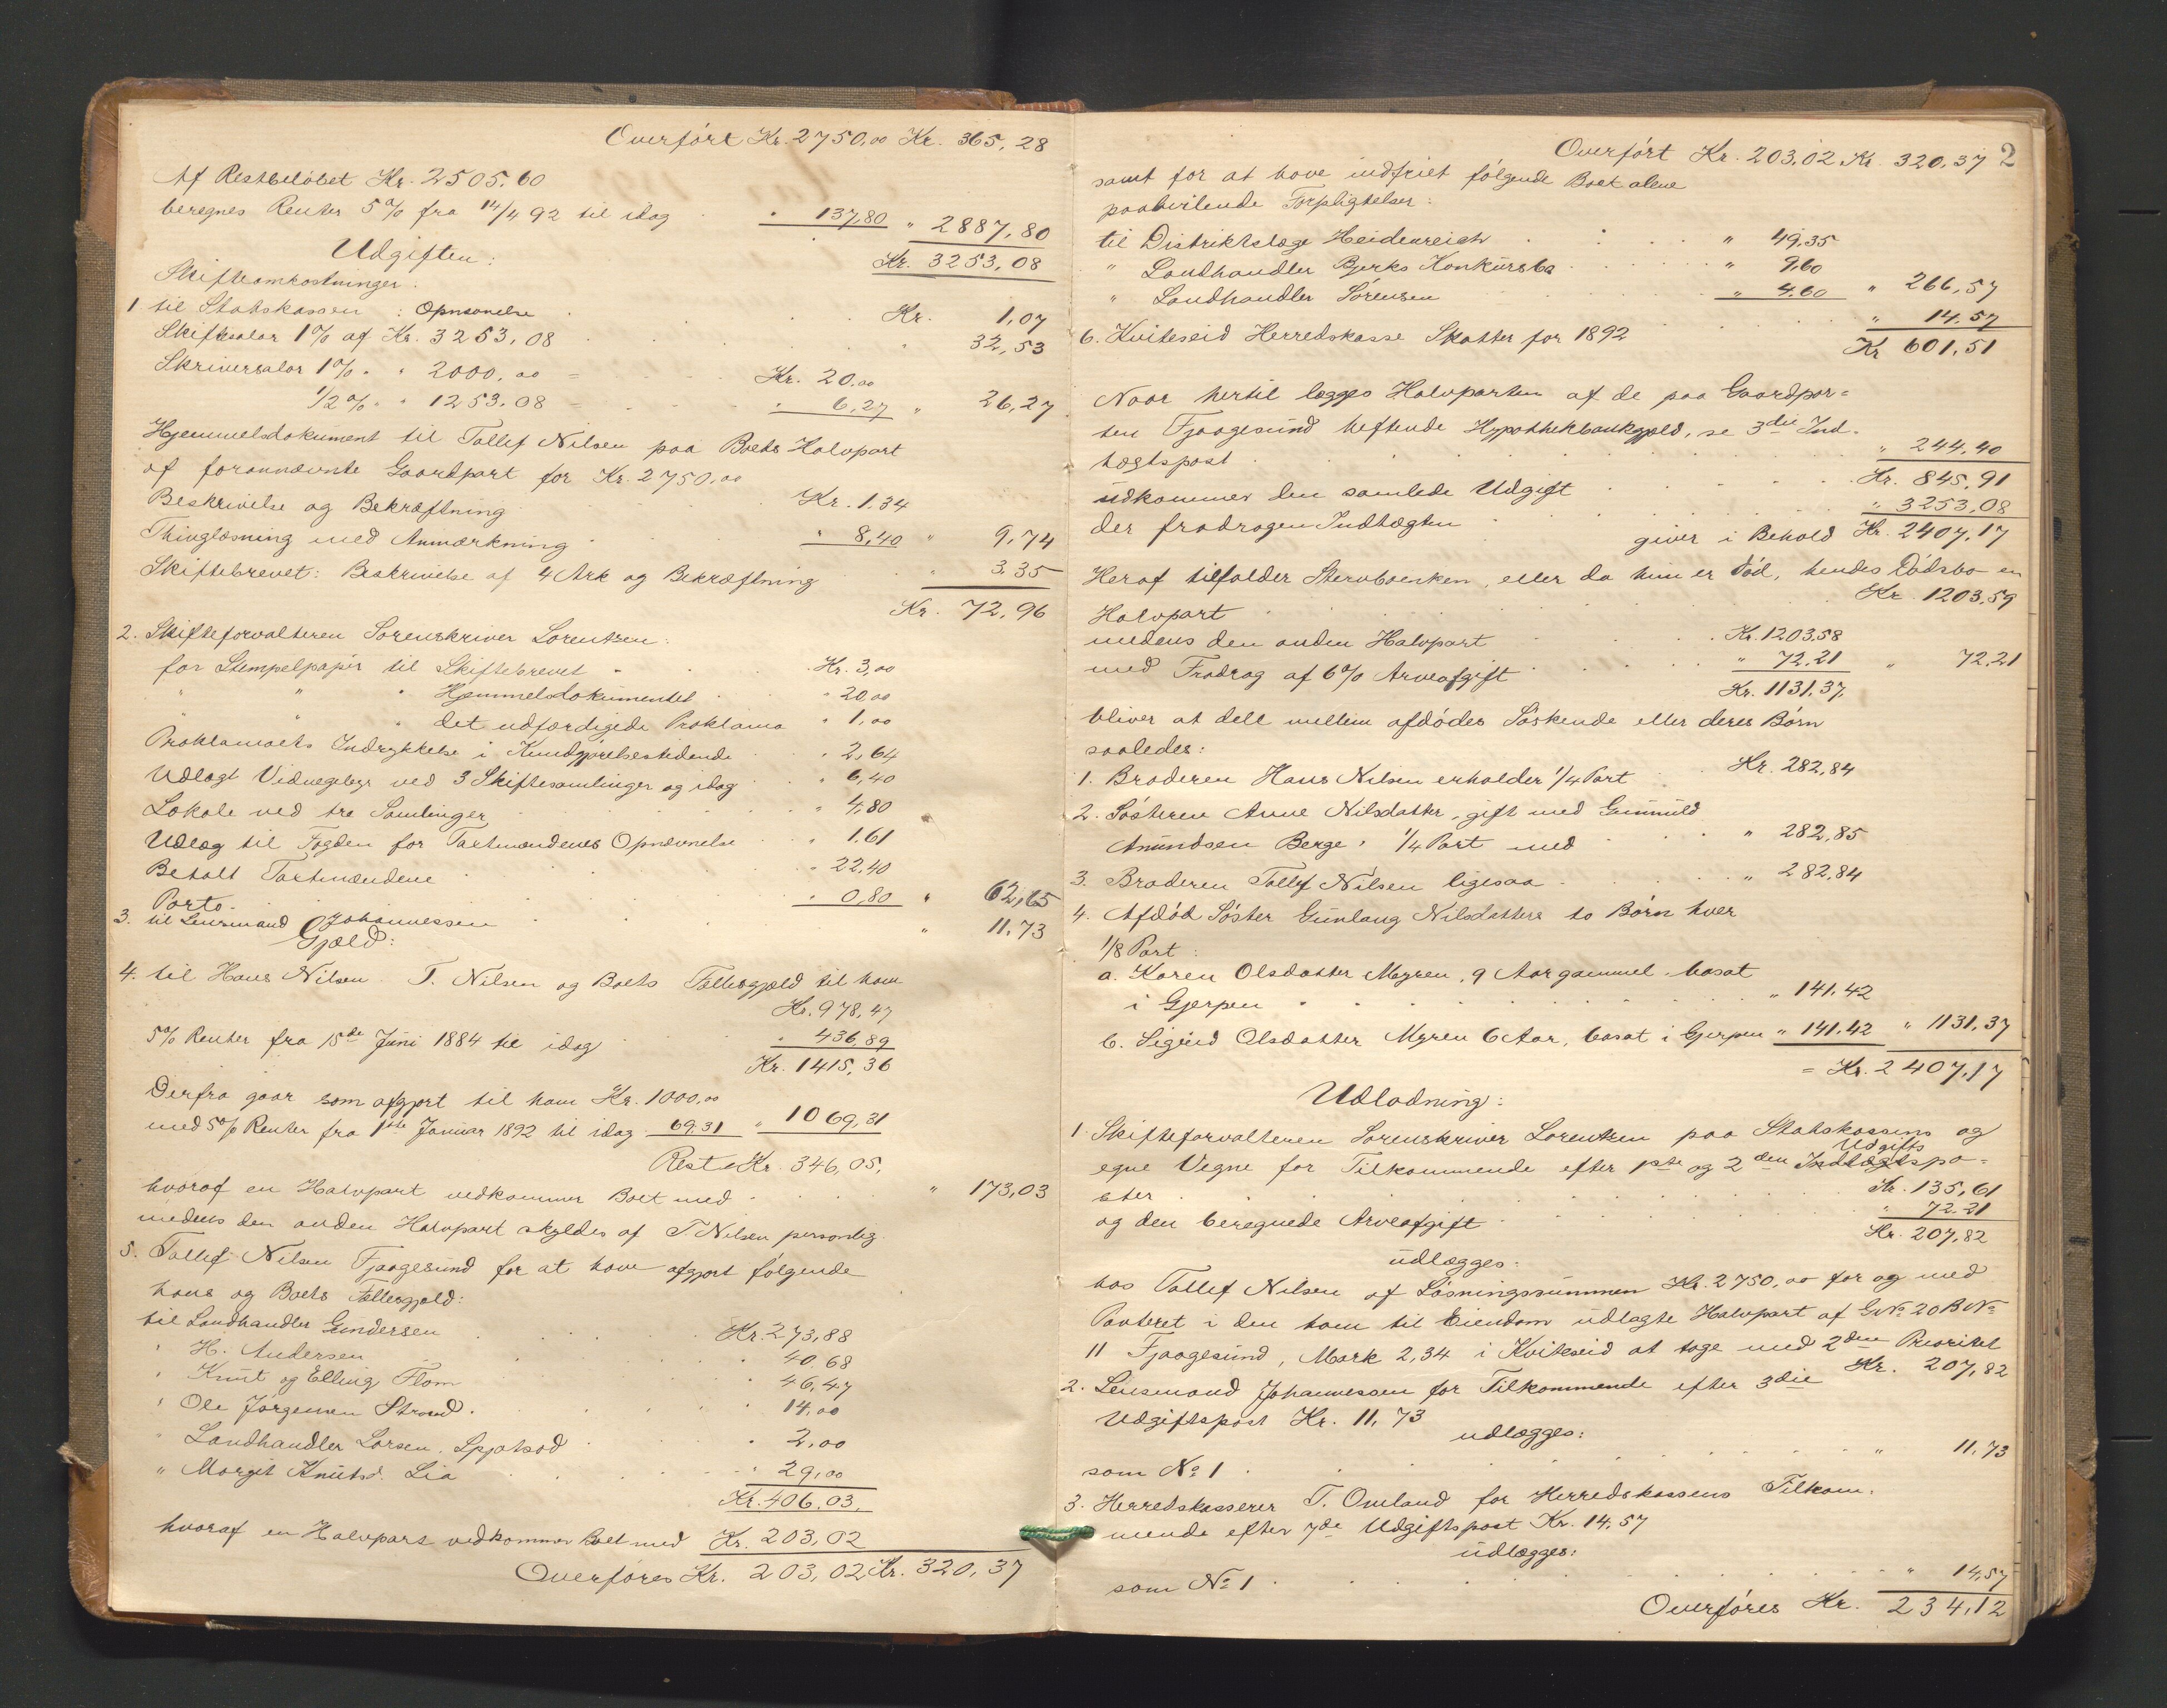 Overført Kr. 2750,00 Kr. 365,28
Af Restbeløbet Kr. 2505.60
beregnes Renter 5% fra 14/4 92 til idag " 137,80 " 2887,80
Kr. 3253,08
Udgiften:
Skifteomkostninger.
1 til Statskassen: Opnævnelse Kr. 1,07
Skiftesalar 1% af Kr. 3253,08 " 32,53
Skriversalar 1% " " 2000,00 = Kr. 20.00
1/2% " " 1253.08 = " 6,27 " 26,27
Hjemmelsdokument til Tallef Nilsen paa Boets Halvpart
af forannævnte Gaardpart for Kr. 2750.00
Beskrivelse og Bekræftning Kr. 1.34
Thinglæsning med Anmærkning " 8,40 " 9,74
Skiftebrevet: Beskrivelse af 4 Ark og Bekræftning " 3,35
Kr. 72,96
2. Skifteforvalteren Sorenskriver Lorentzen:
for Stempelpapir til Skiftebrevet Kr. 3,00
" " " Hjemmelsdokumentet " 20,00
" " " det udfærdigede Proklama " 1,00
Proklamaets Indrykkelse i Kundgjørelsestidende " 2,64
Udlagt Vidnegebyr ved 3 Skiftesamlinger og idag " 6,40
Lokale ved tre Samlinger " 4,80
Udlæg til Fogden for Taxtmændenes Opnævnelse " 1.61
Betalt Taxtmændene " 22,40
Porto " 0,80 " 62,65
3. til Lensmand Johannessen " 11.73
Gjæld:
4. til Hans Nilsen T. Nilsen og Boets Fællesgjæld til ham
Kr. 978,47
5% Renter fra 15de Juni 1884 til idag " 436,89
Kr. 1415,36
Derfra gaar som afgjort til ham Kr. 1000,00
med 5% Renter fra 1ste Januar 1892 til idag 69.31 " 1069,31
Rest Kr. 346,05.
hvoraf en Halvpart vedkommer Boet med " 173,03
medens den anden Halvpart skyldes af T Nilsen personlig.
5. Tallef Nilsen Fjaagesund for at have afgjort følgende
hans og Boets Fællesgjæld:
til Landhandler Gundersen Kr. 273,88
" H. Andersen " 40.68
" Knut og Elling Flom " 46,47
" Ole Jørgensen Strand " 14,00
" Landhandler Larsen, " 2,00
" Margit Knutsd. Lia " 29,00
Kr. 406.03.
hvoraf en Halvpart vedkommer Boet med Kr. 203,02
Overføres Kr. 203,02 Kr. 320,37
2
Overført Kr. 203,02 Kr. 320,37
samt for at have indfriet følgende Boet alene
paahvilende Forpligtelser:
til Distriktslæge Heidenreich " 49,35
" Landhandler Bjerks Konkursbo " 9,60
" Landhandler Sørensen " 4.60 " 266,57
6. Kviteseid Herredskasse Skatter for 1892 " 14.57
Kr 601,51
Naar hertil lægges Halvparten af de paa Gaardpar=
ten Fjaagesund heftende Hypothekbankgjæld, se 3die Ind-
tægtspost " 244,40
udkommer den samlede Udgift Kr. 845,91
der fradragen Indtægten " 3253,08
giver i Behold Kr. 2407,17
Heraf tilfalder Stervboenken, eller da hun er død, hendes Dødsbo en
Halvpart Kr. 1203,59
medens den anden Halvpart Kr. 1203.58
med Fradrag af 6% Arveafgift " 72,21 " 72,21
Kr. 1131.37,
bliver at dele mellem afdødes Søskende eller deres Børn
saaledes:
1. Broderen Hans Nilsen erholder 1/4 Part Kr. 282,84
2. Søsteren Anne Nilsdatter, gift med Gunnuld
Amundsen Berge, 1/4 Part med " 282,85
3. Broderen Tallef Nilsen ligesaa " 282,84
4. Afdød Søster Gunlaug Nilsdatters to Børn hver
1/8 Part:
a. Karen Olsdatter Myren, 9 Aar gammel, bosat
i Gjerpen " 141,42
b. Sigrid Olsdatter Myren 6 Aar, bosat i Gjerpen " 141.42 " 1131.37
= Kr. 2407,17
Udlodning:
1. Skifteforvalteren Sorenskriver Lorentzen paa Statskassens og
egne Vegne for Tilkommende efter 1ste og 2den Udgifts Indtægtspo=
ster Kr. 135,61
og den beregnede Arveafgift " 72.21
Kr. 207,82
udlægges:
hos Tallef Nilsen af Løsningssummen Kr. 2750,00 for og med
Panteret i den ham til Eiendom udlagte Halvpart af GNo 20 BNo
11 Fjaagesund, Mark 2,34 i Kviteseid at tage med 2den Prioritet
Kr. 207,82
2. Lensmand Johannessen for Tilkommende efter 3die
Udgiftspost Kr. 11,73
udlægges:
som No 1 " 11.73
3. Herredskasserer T. Omland for Herredskassens Tilkom-
mende efter 7de Udgiftspost Kr. 14,57
udlægges:
som No 1 " 14,57
Overføres Kr. 234,12